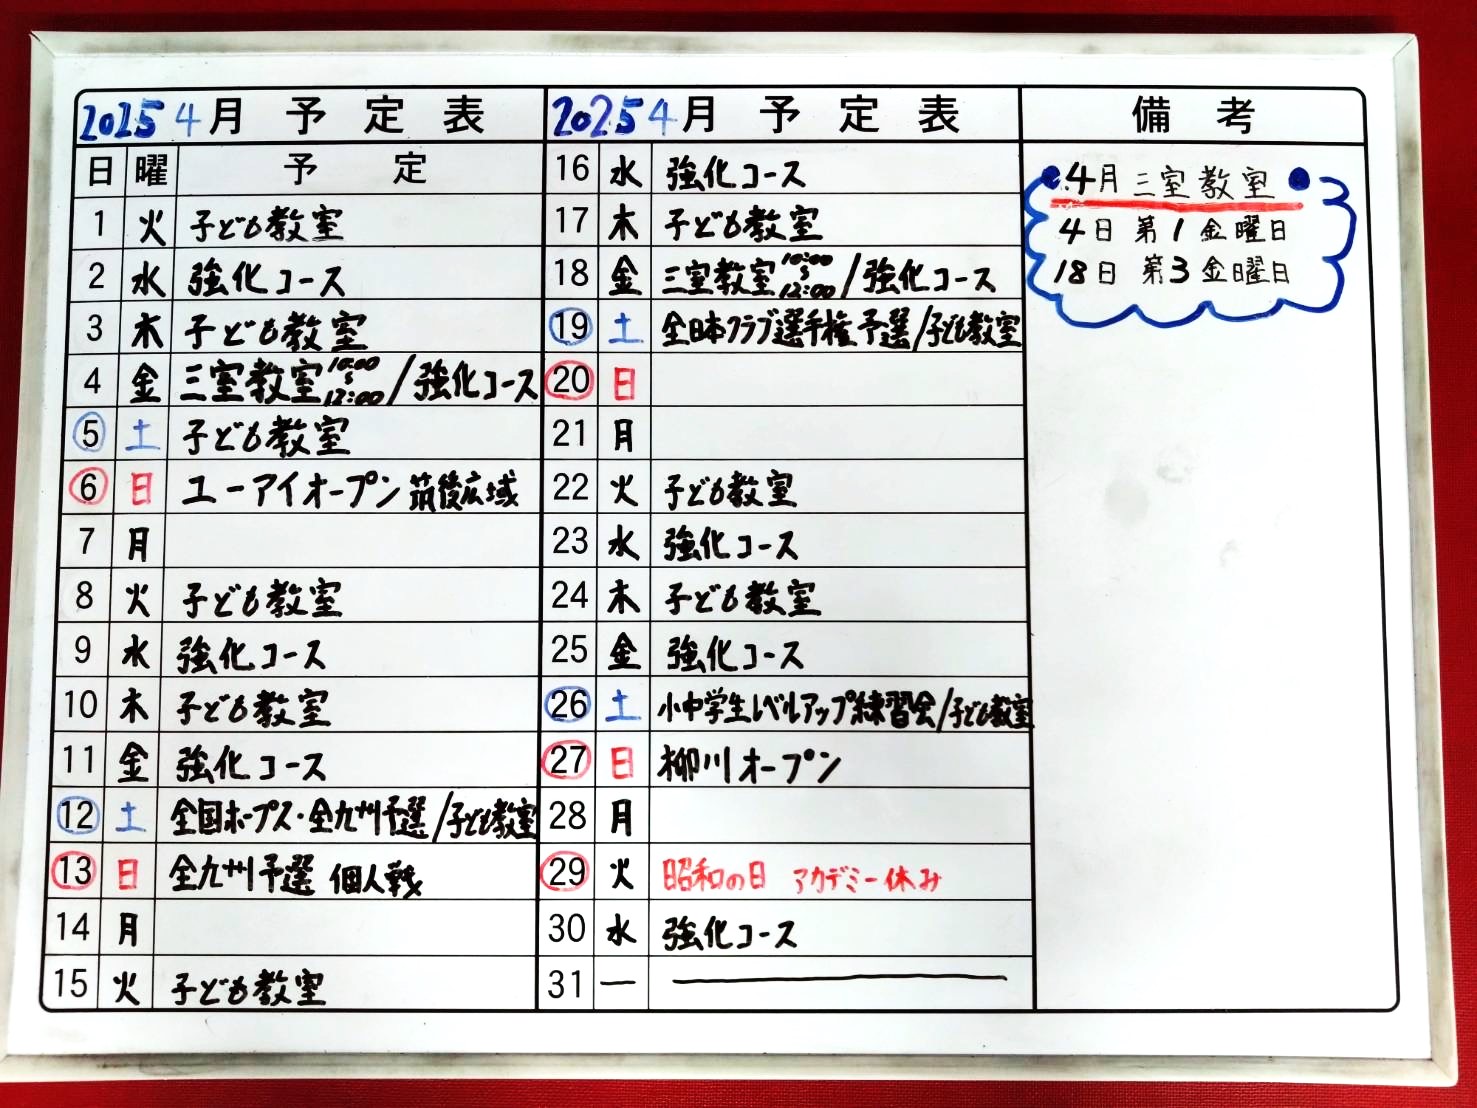 2025 4月 予定表
日 曜 予定
1 火 子ども教室
2 水 強化コース
3 木 子ども教室
4 金 三室教室 10:00〜12:00 / 強化コース
5 土 子ども教室
6 日 ユーアイオープン 筑後広域
7 月
8 火 子ども教室
9 水 強化コース
10 木 子ども教室
11 金 強化コース
12 土 全国ホープス・全九州予選/子ども教室
13 日 全九州予選 個人戦
14 月
15 火 子ども教室
2025 4月 予定表
16 水 強化コース
17 木 子ども教室
18 金 三室教室 10:00〜12:00 / 強化コース
19 土 全日本クラブ選手権予選/子ども教室
20 日
21 月
22 火 子ども教室
23 水 強化コース
24 木 子ども教室
25 金 強化コース
26 土 小中学生レベルアップ練習会/子ども教室
27 日 柳川オープン
28 月
29 火 昭和の日 アカデミー休み
30 水 強化コース
31 ー
備考
4月 三室教室
4日 第1金曜日
18日 第3金曜日